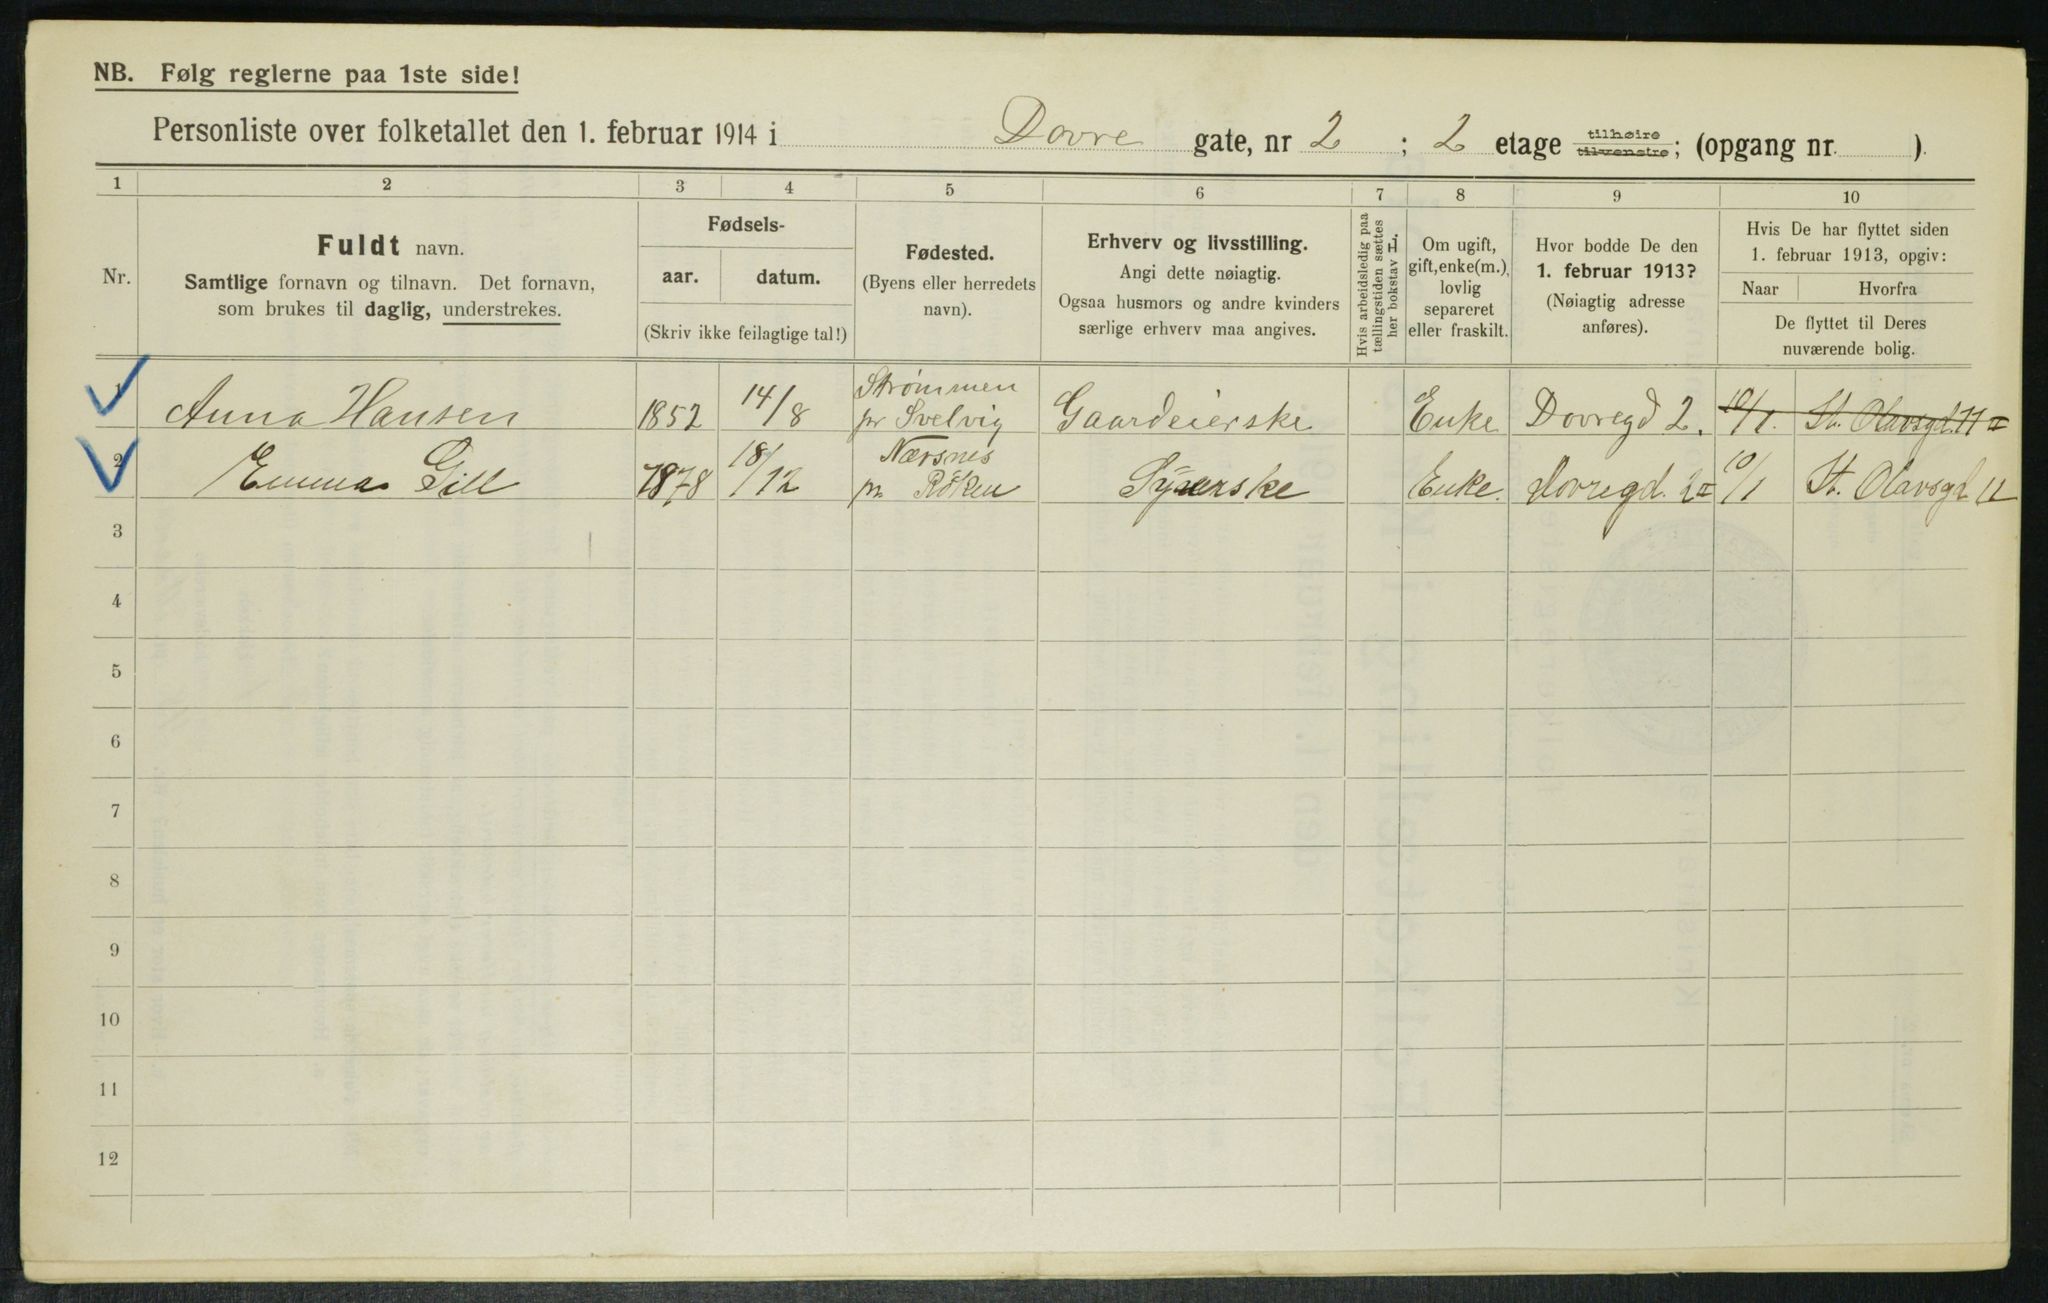 NB. Følg reglerne paa 1ste side!
Personliste over folketallet den 1. februar 1914 i Dovre gate, nr 2 ; 2 etage tilhøire tilvenstre; (opgang nr. ).
1 2 3 4 5 6 7 8 9 10
Nr.
Fuldt navn.
Samtlige fornavn og tilnavn. Det fornavn,
som brukes til daglig, understrekes.
Fødsels-
aar. datum.
(Skriv ikke feilagtige tal!)
Fødested.
(Byens eller herredets
navn).
Erhverv og livsstilling.
Angi dette nøiagtig.
Ogsaa husmors og andre kvinders
særlige erhverv maa angives.
Hvis arbeidsledig paa
tællingstiden sættes
her bokstav L.
Om ugift,
gift, enke(m.),
lovlig
separeret
eller fraskilt.
Hvor bodde De den
1. februar 1913?
(Nøiagtig adresse
anføres).
Hvis De har flyttet siden
1. februar 1913, opgiv:
Naar Hvorfra
De flyttet til Deres
nuværende bolig.
1 Anna Hansen 1852 14/8 Strømmen
pr Svelvig Gaardeierske Enke Dovregd 2. 10/1. St. Olavsgd. 11 II
2 Emma Gill 1878 18/12 Nærsnes
pr Röken Syerske Enke. Dovregd. 2 II 10/1 St. Olavsgd 11
3
4
5
6
7
8
9
10
11
12